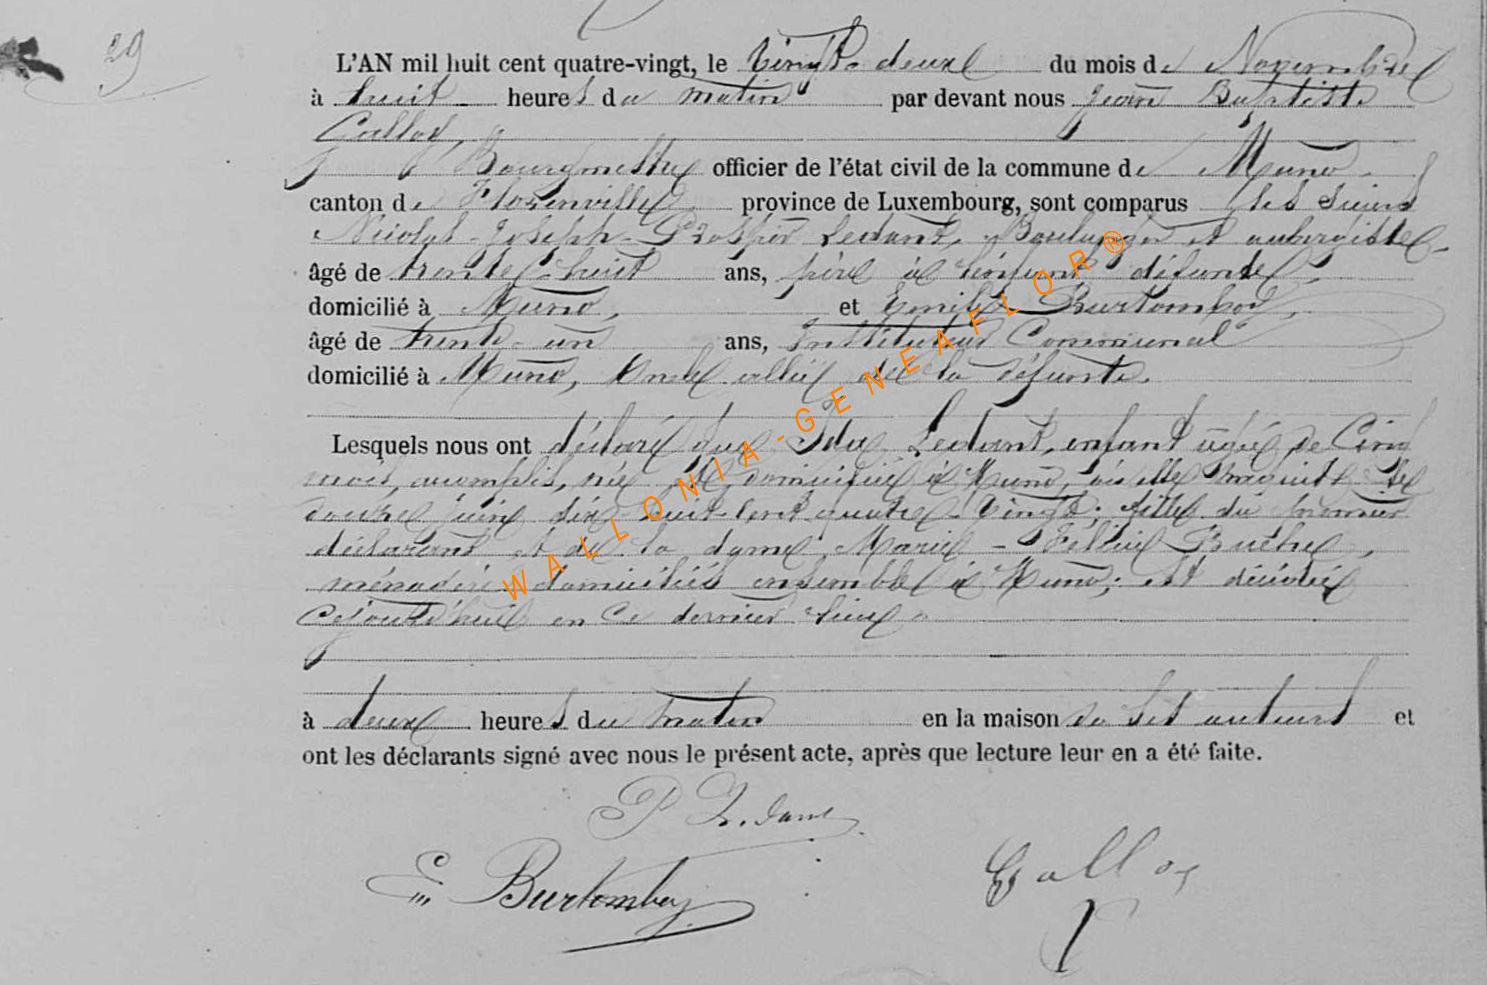 29
L'AN mil huit cent quatre-vingt, le vingt-deux du mois de Novembre
à huit heures du matin par devant nous Jean Baptiste
Galloy,
Bourgmestre officier de l'état civil de la commune de Muno
canton de Florenville province de Luxembourg, sont comparus les sieurs
Nicolas-Joseph-Prosper Ledant, Boulanger et aubergiste
âgé de trente-huit ans, père à l'enfant défunte,
domicilié à Muno, et Emile Burtomboy,
âgé de trente-un ans, Instituteur Communal
domicilié à Muno, Oncle allié de la défunte.
Lesquels nous ont déclaré que Ida Ledant, enfant âgée de Cinq
mois, accomplis, née et domiciliée à Muno, où elle naquit le
douze juin dix-huit-cent quatre-vingt; fille du premier
déclarant et de la dame Marie-
ménagère domiciliés ensemble à Muno; est décédée
cejourd'hui en ce dernier lieu
à deux heures du matin en la maison de ses auteurs et
ont les déclarants signé avec nous le présent acte, après que lecture leur en a été faite.
P Ledant
E Burtomboy
Galloy
WALLONIA-GENEAFLOR®